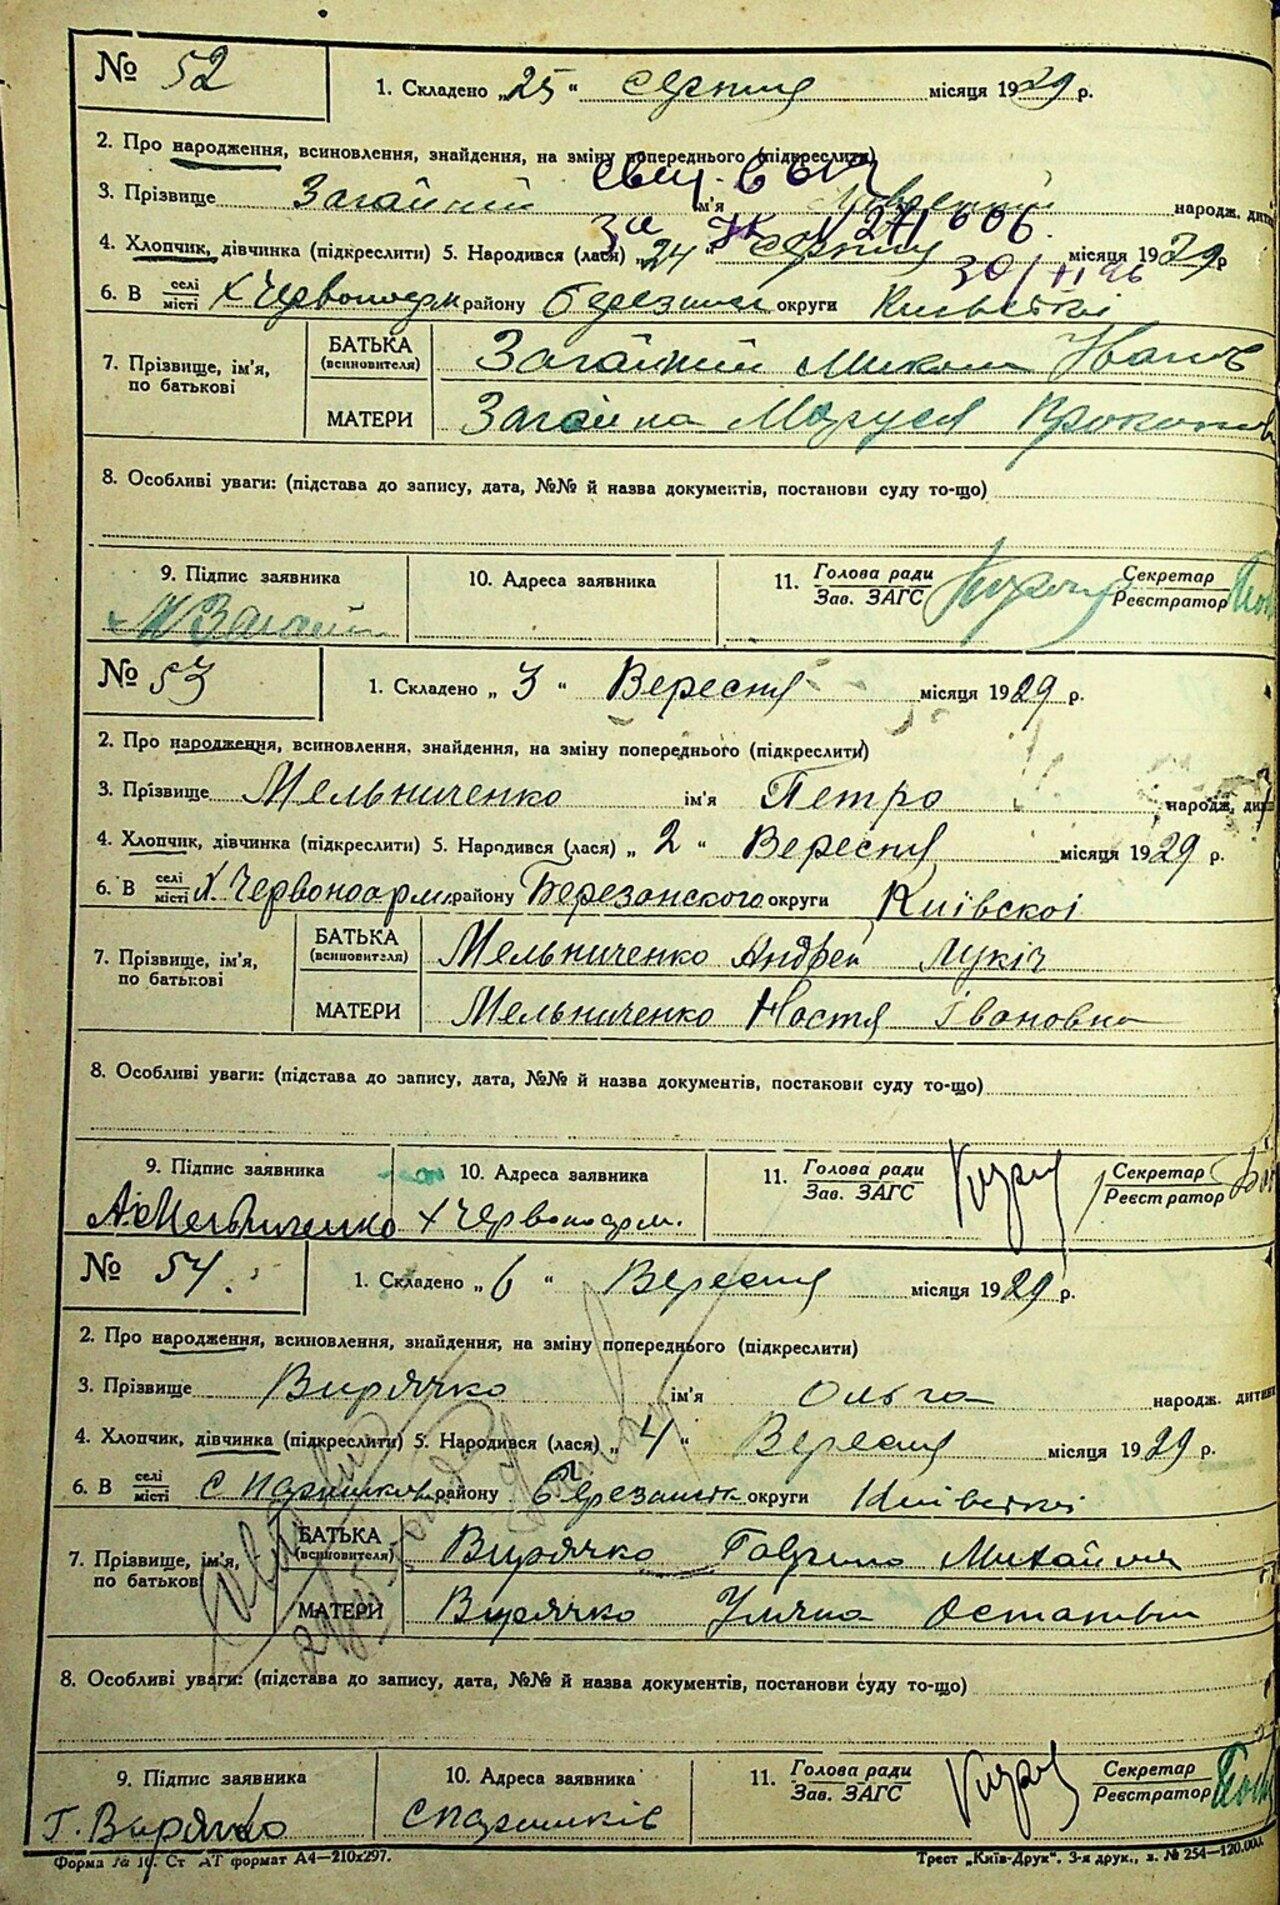 № 52
1. Складено „25" серпня місяця 1929 р.
2. Про народження, всиновлення, знайдення, на зміну попереднього (підкреслити)
3. Прізвище Загайний ім'я народж. дитини
4. Хлопчик, дівчинка (підкреслити) 5. Народився (лася) „24" серпня місяця 1929 р
6. В селі місті Х Червоноарм району Березанск округи Київскої
7. Прізвище, ім'я, по батькові
БАТЬКА (всиновителя) Загайний Микола Іванов
МАТЕРИ Загайна Маруся Прокопів
8. Особливі уваги: (підстава до запису, дата, №№ й назва документів, постанови суду то-що)
9. Підпис заявника
10. Адреса заявника
11. Голова ради Зав. ЗАГС
Секретар Реєстратор
М Загайний
№ 53
1. Складено „3" Вересня місяця 1929 р.
2. Про народження, всиновлення, знайдення, на зміну попереднього (підкреслити)
3. Прізвище Мельниченко ім'я Петро народж. дитини
4. Хлопчик, дівчинка (підкреслити) 5. Народився (лася) „2" Вересня місяця 1929 р.
6. В селі місті Х. Червоноарм. району Березанского округи Київскоі
7. Прізвище, ім'я, по батькові
БАТЬКА (всиновителя) Мельниченко Андрей Лукіч
МАТЕРИ Мельниченко Настя Івановна
8. Особливі уваги: (підстава до запису, дата, №№ й назва документів, постакови суду то-що)
9. Підпис заявника
10. Адреса заявника
11. Голова ради Зав. ЗАГС
Секретар Реєстратор
А. Мельниченко
х Червоноарм.
№ 54.
1. Складено „6" Вересня місяця 1929 р.
2. Про народження, всиновлення, знайдення, на зміну попереднього (підкреслити)
3. Прізвище Вирячко ім'я Ольга народж. дитини
4. Хлопчик, дівчинка (підкреслити) 5. Народився (лася) „4" Вересня місяця 1929 р.
6. В селі місті с Паришков району Березанск округи Київскої
7. Прізвище, ім'я, по батькові
БАТЬКА (всиновителя) Вирячко Гаврило Михайлов
МАТЕРИ Вирячко Уляна Остапівн
8. Особливі уваги: (підстава до запису, дата, №№ й назва документів, постанови суду то-що)
9. Підпис заявника
10. Адреса заявника
11. Голова ради Зав. ЗАГС
Секретар Реєстратор
Г. Вирячко
с Паришків
Форма № 10. Ст АТ формат А4—210х297.
Трест „Київ-Друк". 3-я друк., з. № 254—120.000.